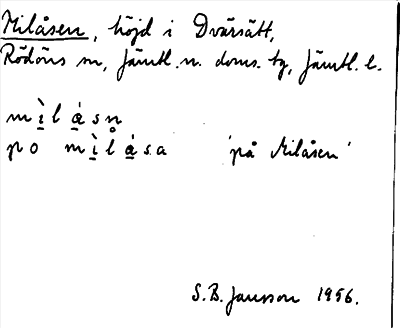 Milåsen, höjd i Dvärsätt,
Rödöns sn, Jämtl. n. doms. tg, Jämtl. l.
mı̠̀l á̠sn
po mı̠̀l̥á̠sa 'på Milåsen'
S.B. Jansson 1956.